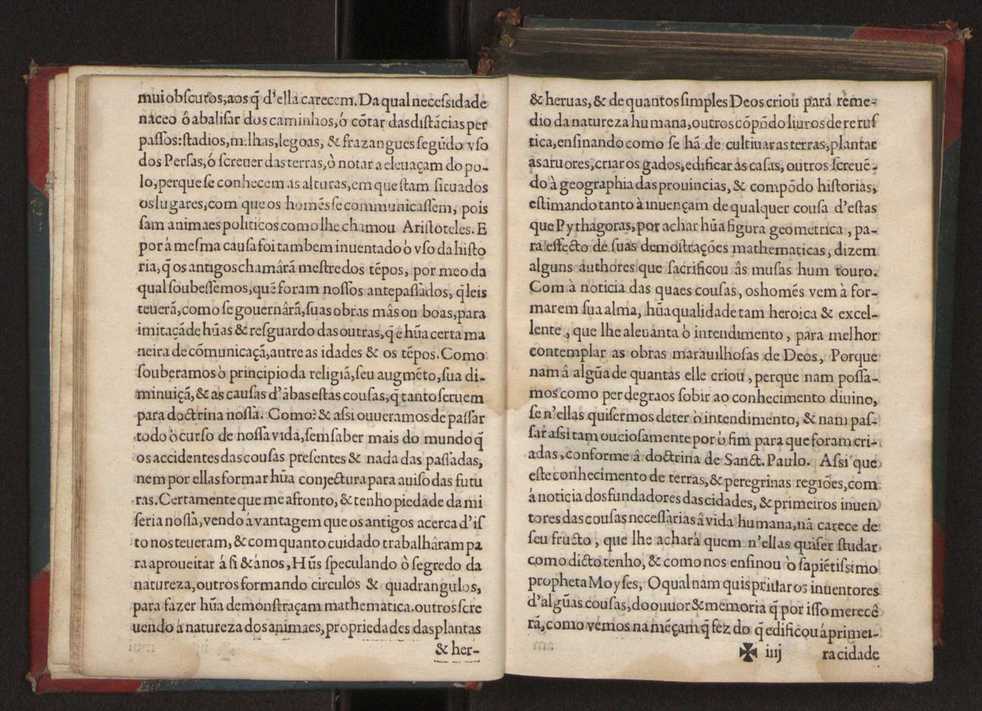 mui obscuros, aos q̃ d'ella carecem. Da qual necessidade
naceo ó abalisar dos caminhos, ò cõtar das distãcias per
passos: stadios, milhas, legoas, & frazangues segũdo vso
dos Persas, ó screuer das terras, ò notar a eleuaçam do po-
lo, perque se conhecem as alturas, em que stam situados
os lugares, com que os homẽs se communicassem, pois
sam animaes politicos como lhe chamou Aristoteles. E
por à mesma causa foi tambem inuentado ò vso da histo
ria, q̃ os antigos chamârã mestre dos tẽpos, por meo da
qual soubessemos, quẽ foram nossos antepassados, q̃ leis
teuerã, como se gouernârã, suas obras mâs ou boas, para
imitaçã de hũas & resguardo das outras, q̃ é hũa certa ma
neira de cõmunicaçã, antre as idades & os tẽpos. Como
souberamos ò principio da religiã, seu augmẽto, sua di-
minuiçã, & as causas d'âbas estas cousas, q̃ tanto seruem
para doctrina nossa. Como? & assi ouueramos de passar
todo ò curso de nossa vida, sem saber mais do mundo q̃
os accidentes das cousas presentes & nada das passadas,
nem por ellas formar hũa conjectura para auiso das futu
ras. Certamente que me afronto, & tenho piedade da mi
seria nossa, vendo à vantagem que os antigos acerca d'is
to nos teueram, & com quanto cuidado trabalhâram pa
ra aproueitar â si & á nos, Hũs speculando ò segredo da
natureza, outros formando circulos & quadrangulos,
para fazer hũa demonstraçam mathematica. outros scre
uendo à natureza dos animaes, propriedades das plantas
& her-
& heruas, & de quantos simples Deos criou para reme-
dio da natureza humana, outros cõpõdo liuros de re rus
tica, ensinando como se hã de cultiuar as terras, plantar
as aruores, criar os gados, edificar as casas, outros screuẽ-
do à geographia das prouincias, & compõdo historias,
estimando tanto à inuençam de qualquer cousa d'estas
que Pythagoras, por achar hũa figura geometrica, pa-
ra effecto de suas demõstrações mathematicas, dizem
alguns authores que sacrificou âs musas hum touro.
Com â noticia das quaes cousas, os homẽs vem à for-
marem sua alma, hũa qualidade tam heroica & excel-
lente, que lhe aleuanta ò intendimento, para melhor
contemplar as obras marauilhosas de Deos, Porque
nam â algũa de quantas elle criou, perque nam possa-
mos como per degraos sobir ao conhecimento diuino,
se n'ellas quisermos deter ò intendimento, & nam pas-
sar assi tam ouciosamente por ò fim para que foram cri-
adas, conforme â doctrina de Sanct. Paulo. Assi que
este conhecimento de terras, & peregrinas regiões, com
â noticia dos fundadores das cidades, & primeiros inuen
tores das cousas necessarias â vida humana, nã carece de
seu fructo, que lhe achará quem n'ellas quiser studar
como dicto tenho, & como nos ensinou ò sapiẽtissimo
propheta Moyses, O qual nam quis priuar os inuentores
d'algũas cousas, do ouuior & memoria q̃ por isso merecê
rã, como vemos na mẽçam q̃ fez do q̃ edificou á primei-
✠ iiij ra cidade